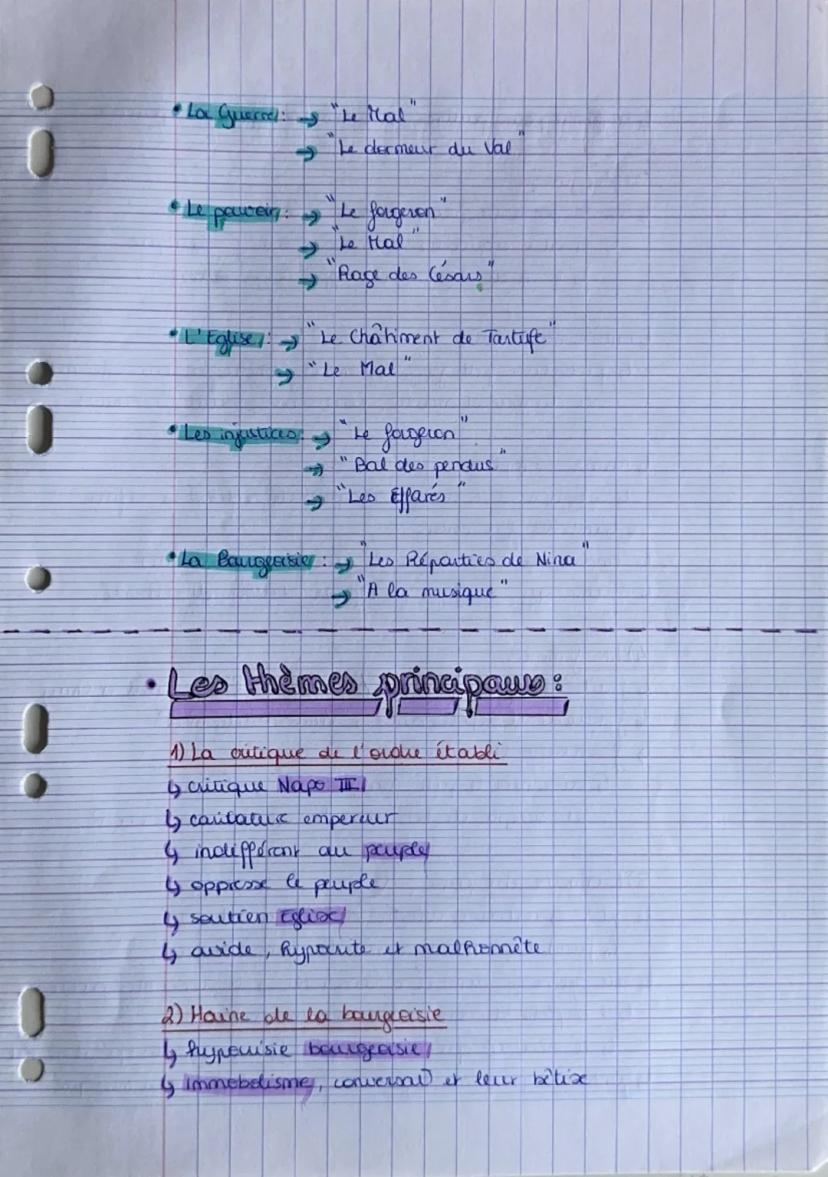 • La Guerre : → "Le Mal"
→ "Le dormeur du Val"
• Le pouvoir : → "Le forgeron"
→ "Le Mal"
→ "Rage des Césars"
• L'Eglise : → "Le Châtiment de Tartufe"
→ "Le Mal"
• Les injustices : → "Le forgeron"
→ "Bal des pendus"
→ "Les Effarés"
• La Bourgeoisie : → "Les Réparties de Nina"
→ "A la musique"
• Les thèmes principaux :
1) La critique de l'ordre établi
↳ critique Napo III
↳ caricature empereur
↳ indifférent au peuple
↳ oppresse le peuple
↳ soutien Eglise
↳ avide, hypocrite et malhonnête
2) Haine de la bourgeoisie
↳ hypocrisie bourgeoisie
↳ immobolisme, et leur bêtise